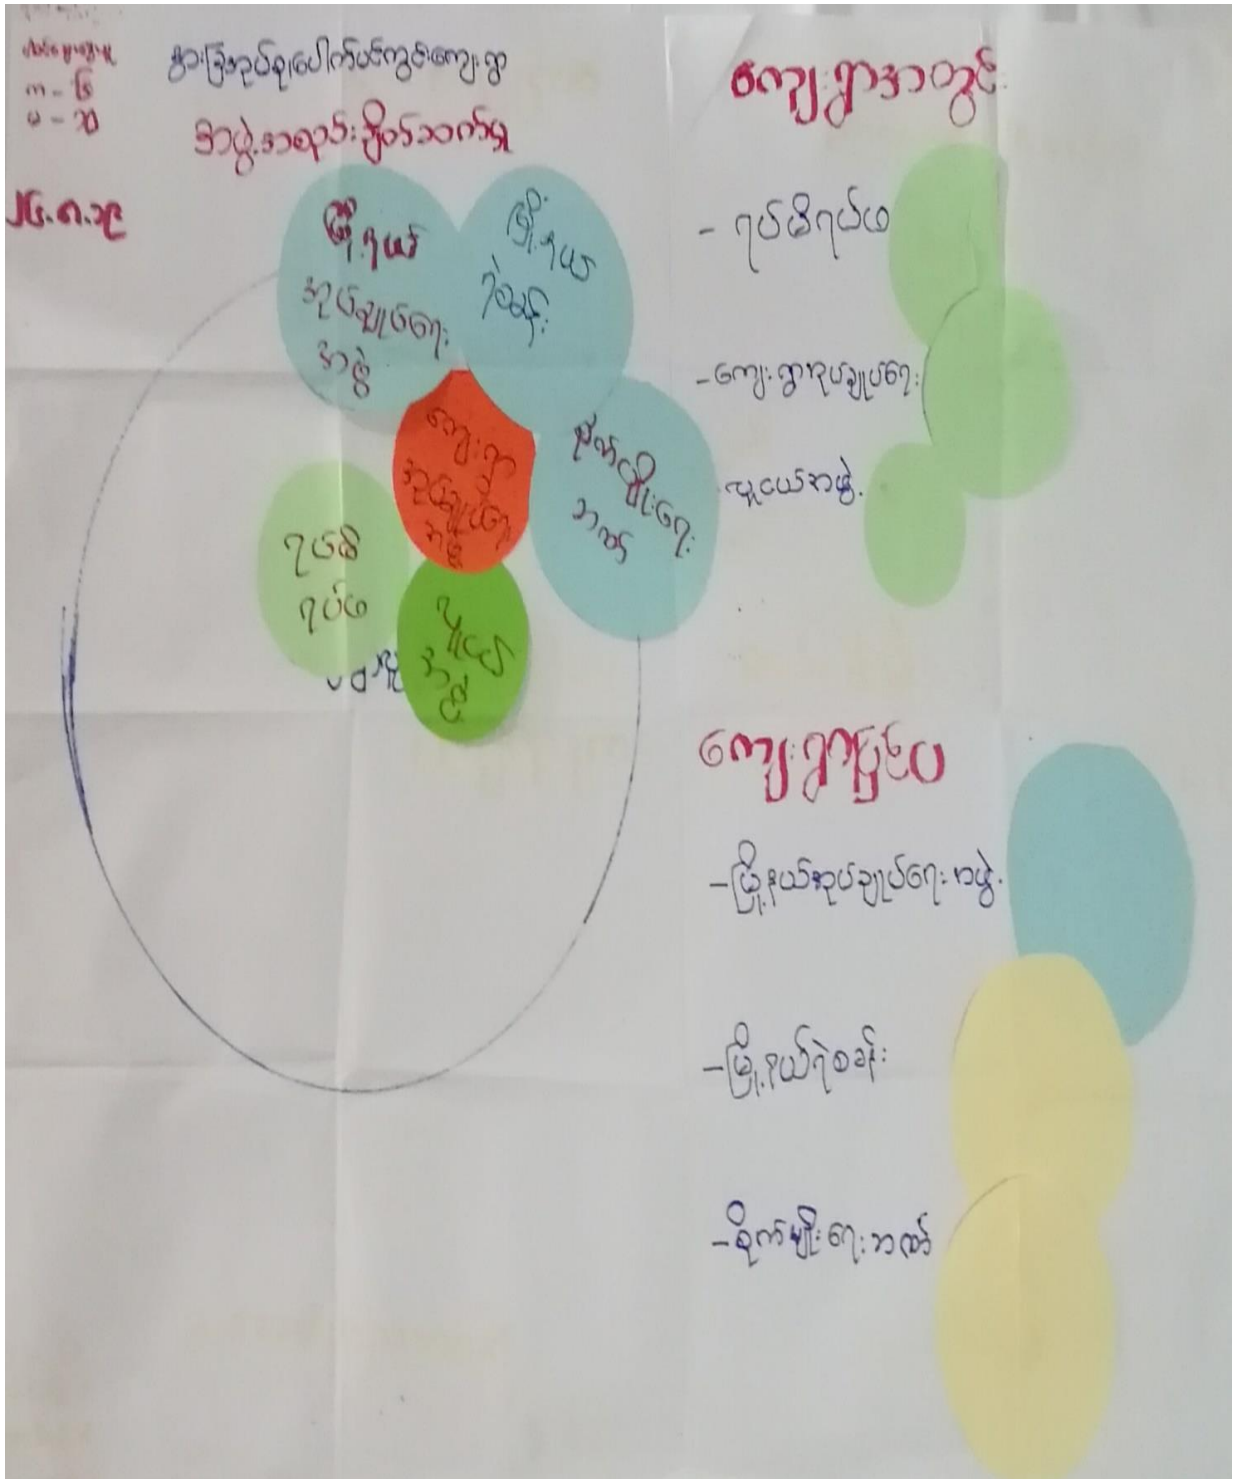 ကျား - ၆
မ - ၁၅
နွားခြံအုပ်စု၊ပေါက်ပင်ကွင်းကျေးရွာ
အဖွဲ့အစည်းချိတ်ဆက်မှု
၂၄.၈.၁၉
မြို့နယ်
အုပ်ချုပ်ရေး
အဖွဲ့
မြို့နယ်
ရဲစခန်း
ကျေးရွာ
အုပ်ချုပ်ရေး
အဖွဲ့
စိုက်ပျိုးရေး
ဘဏ်
ရပ်မိ
ရပ်ဖ
လူငယ်
အဖွဲ့
ကျေးရွာအတွင်း
- ရပ်မိရပ်ဖ
- ကျေးရွာအုပ်ချုပ်ရေး
- လူငယ်အဖွဲ့
ကျေးရွာပြင်ပ
- မြို့နယ်အုပ်ချုပ်ရေးအဖွဲ့
- မြို့နယ်ရဲစခန်း
- စိုက်ပျိုးရေးဘဏ်